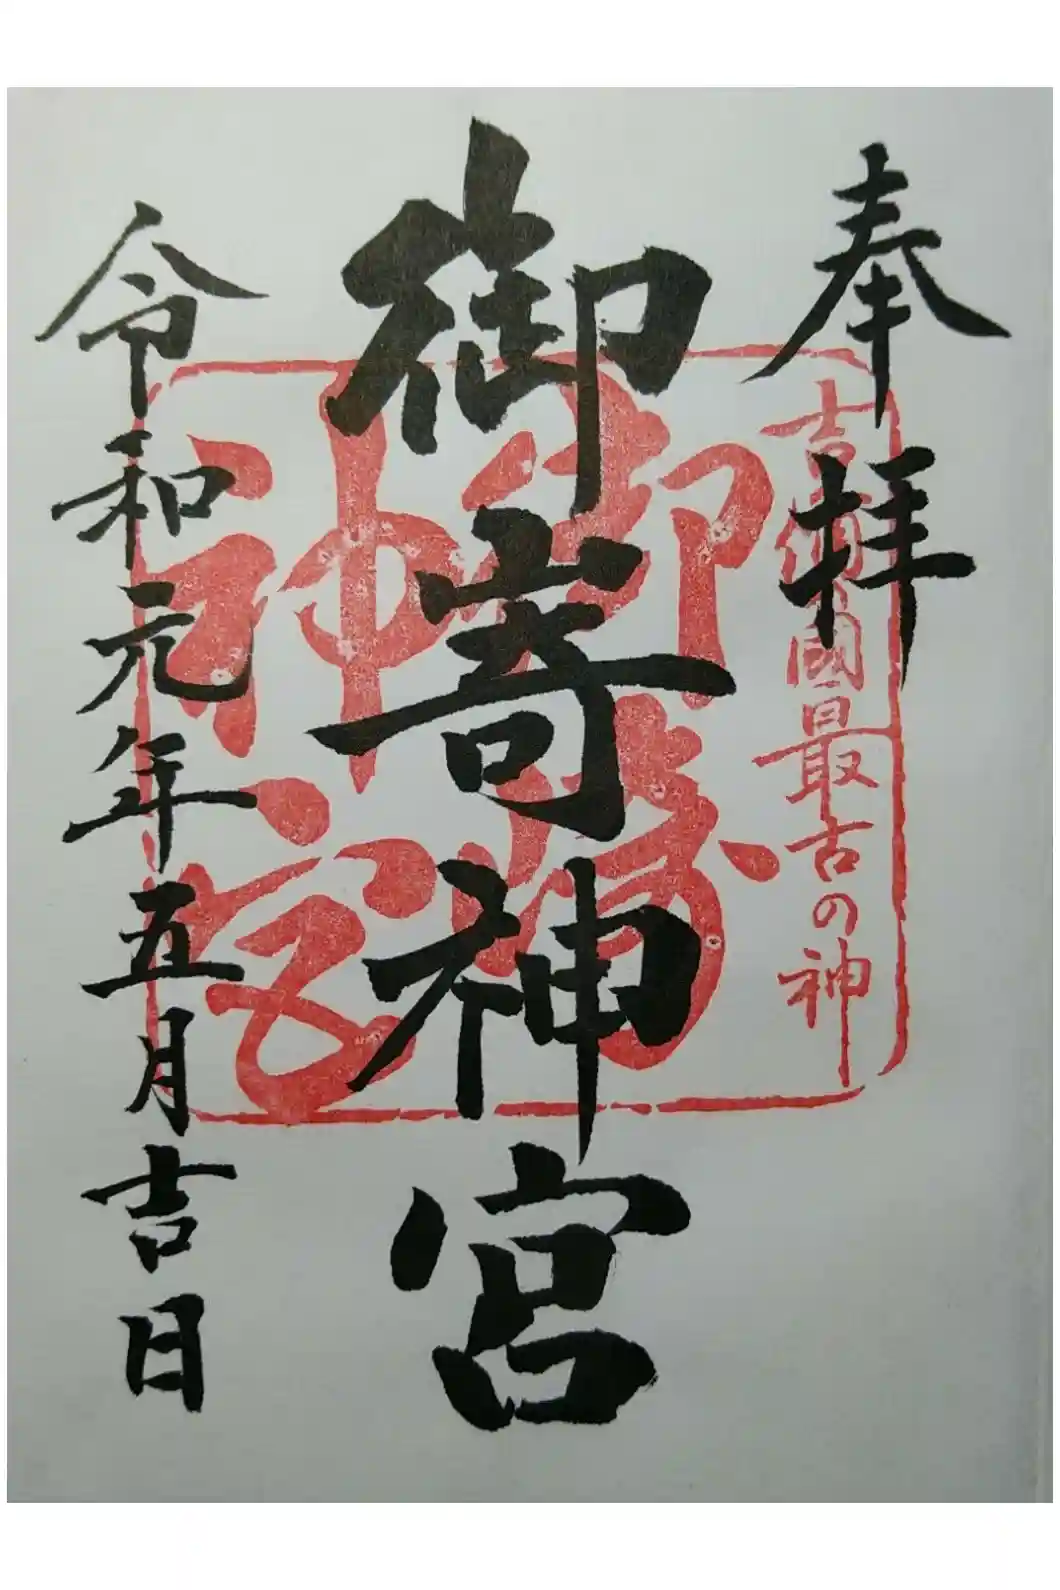 奉拝
吉備國最古の神
御嵜神宮
神宮
令和元年五月吉日